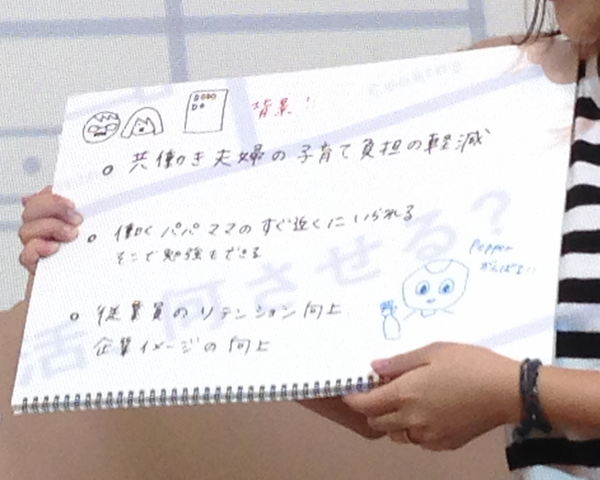 背景!
○ 共働き夫婦の子育て負担の軽減
○ 働くパパママのすぐ近くにいられる
そこで勉強もできる
Pepper
がんばる!!
○ 従業員のリテンション向上
企業イメージの向上
活 何させる?